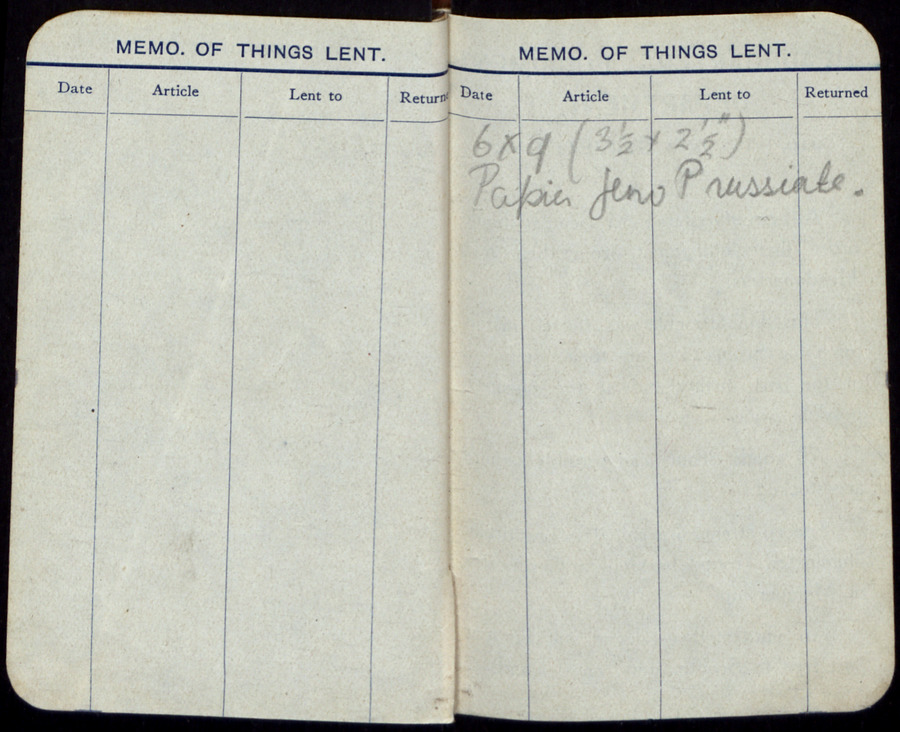 MEMO. OF THINGS LENT.
Date Article Lent to Return
MEMO. OF THINGS LENT.
Date Article Lent to Returned
6x9 (3½ x 2½")
Papier feno Prussiate.